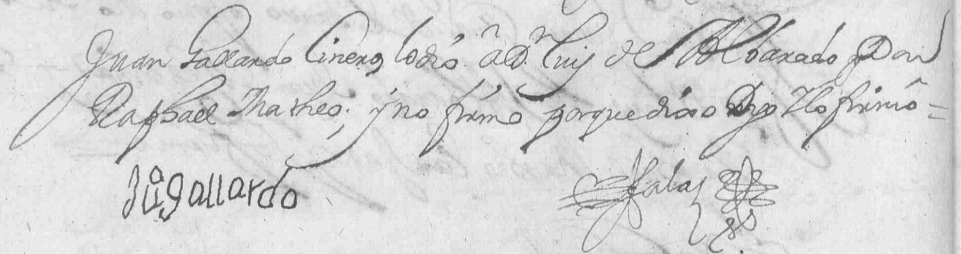 Juan Gallardo Linero, lo dio a Dn Luis de Albarado y Don
Raphael Matheo; y no firmo porque dixo Dijo Y lo firmó =
Juº gallardo Salas